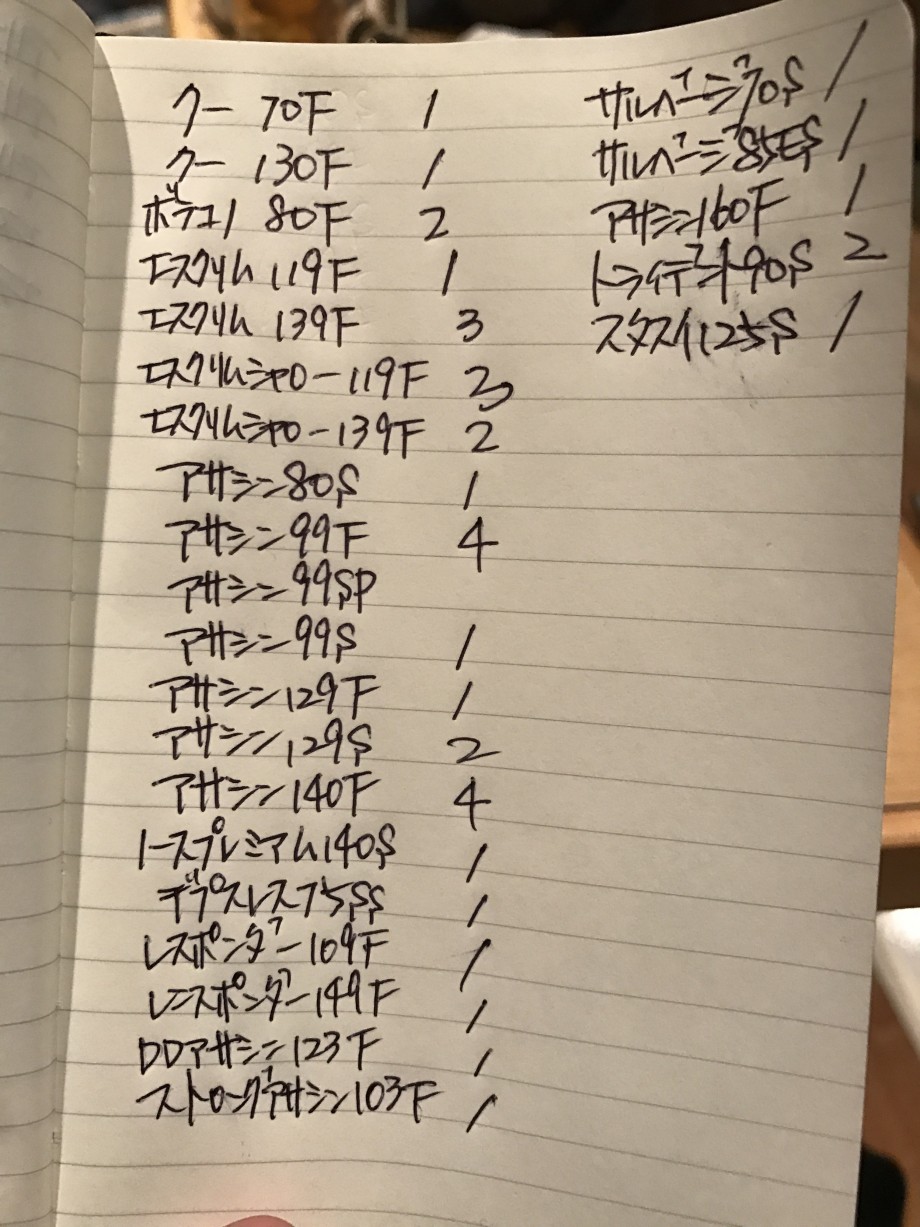 クー 70F 1
クー 130F 1
ボデコノ 80F 2
エスクリム 119F 1
エスクリム 139F 3
エスクリムシャロー 119F 2
エスクリムシャロー 139F 2
アサシン 80S 1
アサシン 99F 4
アサシン 99SP
アサシン 99S 1
アサシン 129F 1
アサシン 129S 2
アサシン 140F 4
ノースプレミアム 140S 1
デプスレス 75SS 1
レスポンダー 109F 1
レスポンダー 149F 1
DDアサシン 123F 1
ストロングアサシン 103F 1
サルベージ 70S 1
サルベージ 85ES 1
アサシン 160F 1
トライデント 90S 2
スタスイ 125S 1